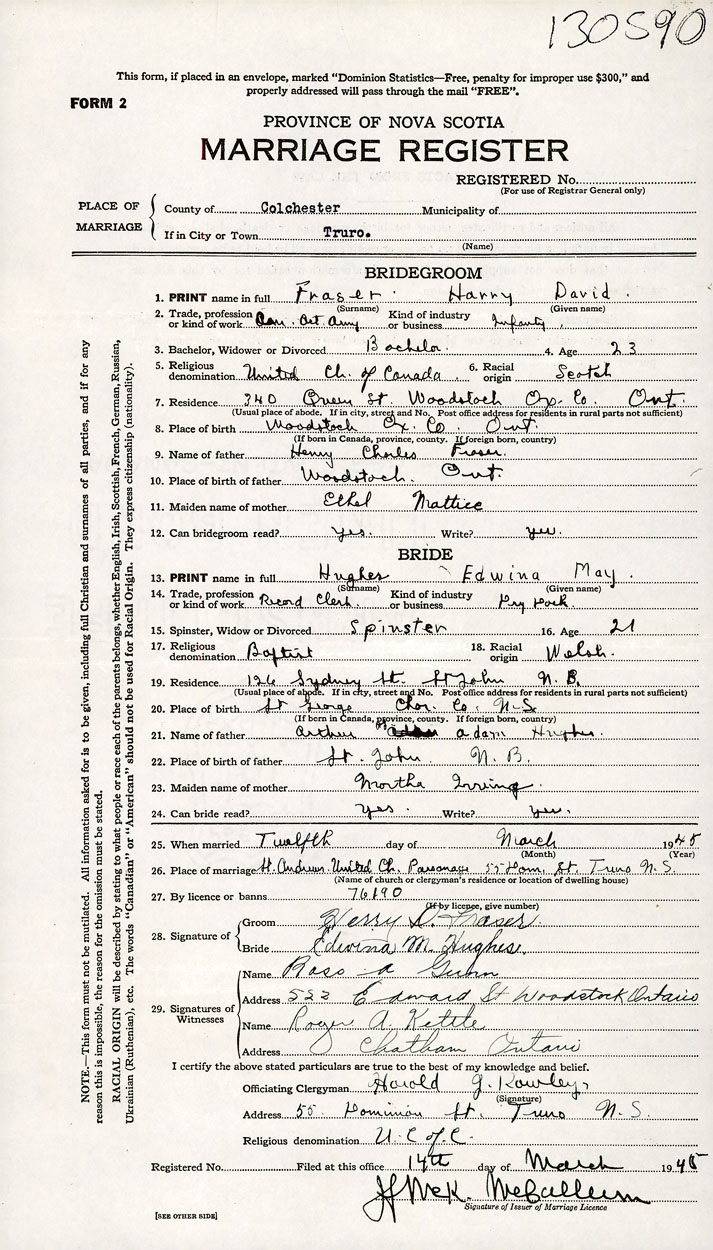 130590
This form, if placed in an envelope, marked "Dominion Statistics—Free, penalty for improper use $300," and
properly addressed will pass through the mail "FREE".
FORM 2
PROVINCE OF NOVA SCOTIA
MARRIAGE REGISTER
REGISTERED No.
(For use of Registrar General only)
PLACE OF MARRIAGE
County of Colchester Municipality of
If in City or Town Truro.
(Name)
BRIDEGROOM
1. PRINT name in full Fraser Harry David.
(Surname) (Given name)
2. Trade, profession or kind of work Can. Act. Army Kind of industry or business Infantry.
3. Bachelor, Widower or Divorced Bachelor 4. Age 23
5. Religious denomination United Ch. of Canada. 6. Racial origin Scotch
7. Residence 340 Queen St. Woodstock Ox. Co. Ont.
(Usual place of abode. If in city, street and No. Post office address for residents in rural parts not sufficient)
8. Place of birth Woodstock Ox. Co. Ont.
(If born in Canada, province, county. If foreign born, country)
9. Name of father Henry Charles Fraser.
10. Place of birth of father Woodstock. Ont.
11. Maiden name of mother Ethel Mattice
12. Can bridegroom read? yes. Write? yes.
BRIDE
13. PRINT name in full Hughes Edwina May.
(Surname) (Given name)
14. Trade, profession or kind of work Record Clerk. Kind of industry or business Dry Dock.
15. Spinster, Widow or Divorced Spinster 16. Age 21
17. Religious denomination Baptist 18. Racial origin Welsh.
19. Residence 126 Sydney St. St John N.B.
(Usual place of abode. If in city, street and No. Post office address for residents in rural parts not sufficient)
20. Place of birth St George Char. Co. N.S
(If born in Canada, province, county. If foreign born, country)
21. Name of father Arthur Adam Hughes.
22. Place of birth of father St. John N.B.
23. Maiden name of mother Martha Irving.
24. Can bride read? yes. Write? yes.
25. When married Twelfth day of March 1945
(Month) (Year)
26. Place of marriage St. Andrews United Ch. Parsonage 55 Dom. St. Truro N.S.
(Name of church or clergyman's residence or location of dwelling house)
27. By licence or banns 76190
(If by licence, give number)
28. Signature of
Groom Harry D. Fraser
Bride Edwina M. Hughes.
29. Signatures of Witnesses
Name Ross A Gunn
Address 522 Edward St Woodstock Ontario
Name Roger A. Kettle
Address Chatham Ontario
I certify the above stated particulars are true to the best of my knowledge and belief.
Officiating Clergyman Harold J. Rowley,
(Signature)
Address 55 Dominion St. Truro N.S.
Religious denomination U.C. of C.
Registered No. Filed at this office 14th day of March 1945
McK. McCallum
Signature of Issuer of Marriage Licence
[SEE OTHER SIDE]
NOTE.—This form must not be mutilated. All information asked for is to be given, including full Christian and surnames of all parties, and if for any
reason this is impossible, the reason for the omission must be stated.
RACIAL ORIGIN will be described by stating to what people or race each of the parents belongs, whether English, Irish, Scottish, French, German, Russian,
Ukrainian (Ruthenian), etc. The words "Canadian" or "American" should not be used for Racial Origin. They express citizenship (nationality).